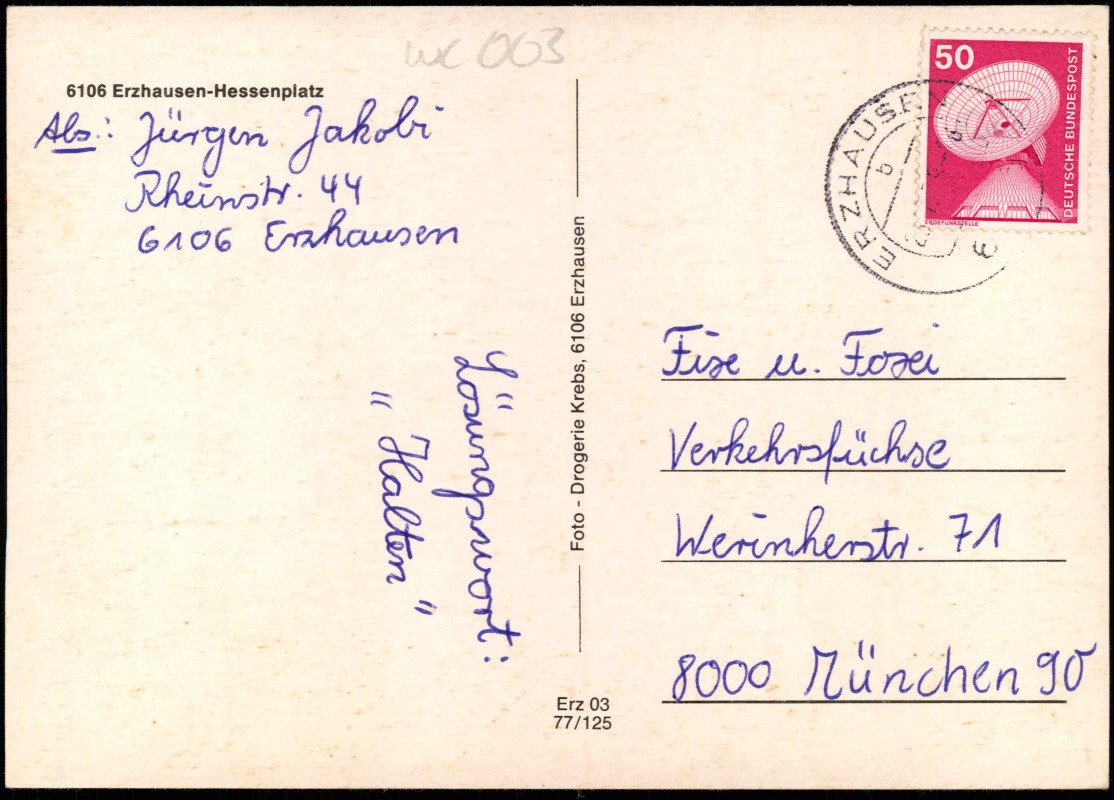 wc 063
6106 Erzhausen-Hessenplatz
Abs.: Jürgen Jakobi
Rheinstr. 44
6106 Erzhausen
Lösungswort:
"Halten"
Foto - Drogerie Krebs, 6106 Erzhausen
Erz 03
77/125
50
DEUTSCHE BUNDESPOST
ERDEFUNKSTELLE
ERZHAUSEN
b
Fixe u. Foxei
Verkehrsfüchse
Werinherstr. 71
8000 München 90